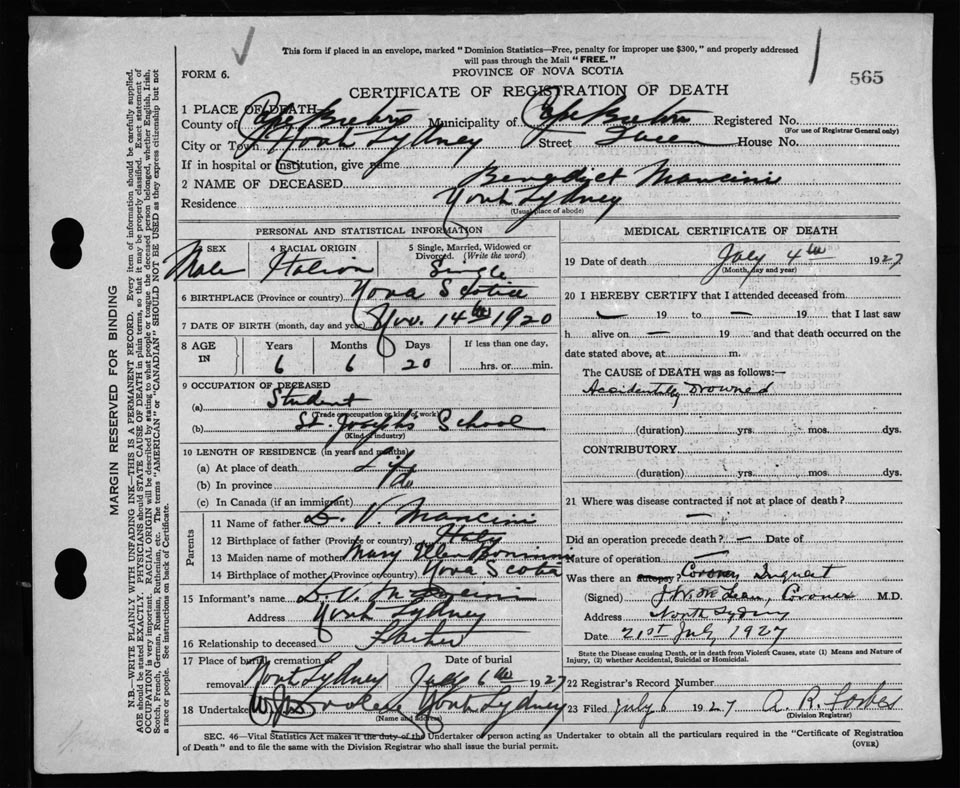 This form if placed in an envelope, marked "Dominion Statistics—Free, penalty for improper use $300," and properly addressed
will pass through the Mail "FREE."
FORM 6.
PROVINCE OF NOVA SCOTIA
565
CERTIFICATE OF REGISTRATION OF DEATH
1 PLACE OF DEATH
County of Cape Breton Municipality of Cape Breton Registered No.
(For use of Registrar General only)
City or Town North Sydney Street House No.
If in hospital or institution, give name
2 NAME OF DECEASED Benedict Mancini
Residence North Sydney
(Usual place of abode)
PERSONAL AND STATISTICAL INFORMATION
3 SEX 4 RACIAL ORIGIN 5 Single, Married, Widowed or
Divorced. (Write the word)
Male Italian Single
6 BIRTHPLACE (Province or country) Nova Scotia
7 DATE OF BIRTH (month, day and year) Nov. 14th 1920
8 AGE IN Years Months Days If less than one day,
6 6 20 hrs. or min.
9 OCCUPATION OF DECEASED
(a) Student
(Trade occupation or kind of work)
(b) St. Josephs School
(Kind of industry)
10 LENGTH OF RESIDENCE (in years and months)
(a) At place of death Life
(b) In province do
(c) In Canada (if an immigrant)
Parents
11 Name of father D. V. Mancini
12 Birthplace of father (Province or country) Italy
13 Maiden name of mother Mary Ellen
14 Birthplace of mother (Province or country) Nova Scotia
15 Informant's name D. V. Mancini
Address North Sydney
16 Relationship to deceased Father
17 Place of burial, cremation or Date of burial
removal North Sydney July 6th 1927
18 Undertaker North Sydney
(Name and address)
MEDICAL CERTIFICATE OF DEATH
19 Date of death July 4th 1927
(Month, day and year)
20 I HEREBY CERTIFY that I attended deceased from
— 19 to — 19 that I last saw
h alive on — 19 and that death occurred on the
date stated above, at m.
The CAUSE of DEATH was as follows:—
Accidentally Drowned
(duration) yrs. mos. dys.
CONTRIBUTORY
(duration) yrs. mos. dys.
21 Where was disease contracted if not at place of death?
—
Did an operation precede death? — Date of
Nature of operation —
Was there an autopsy? Coroners Inquest
(Signed) McLean, Coroner M.D.
Address North Sydney
Date 21st July 1927
State the Disease causing Death, or in death from Violent Causes, state (1) Means and Nature of
Injury, (2) whether Accidental, Suicidal or Homicidal.
22 Registrar's Record Number
23 Filed July 6 1927 A. R. Forbes
(Division Registrar)
SEC. 46—Vital Statistics Act makes it the duty of the Undertaker or person acting as Undertaker to obtain all the particulars required in the "Certificate of Registration
of Death" and to file the same with the Division Registrar who shall issue the burial permit.
(OVER)
MARGIN RESERVED FOR BINDING
N.B.—WRITE PLAINLY WITH UNFADING INK—THIS IS A PERMANENT RECORD. Every item of information should be carefully supplied.
AGE should be stated EXACTLY. PHYSICIANS should STATE CAUSE OF DEATH in plain terms, so that it may be properly classified. Exact statement of
OCCUPATION is very important. RACIAL ORIGIN will be described by stating to what people or tongue the deceased person belonged, whether English, Irish,
Scotch, French, German, Russian, Ruthenian, etc. The terms "AMERICAN" or "CANADIAN" SHOULD NOT BE USED as they express citizenship but not
a race or people. See instructions on back of Certificate.